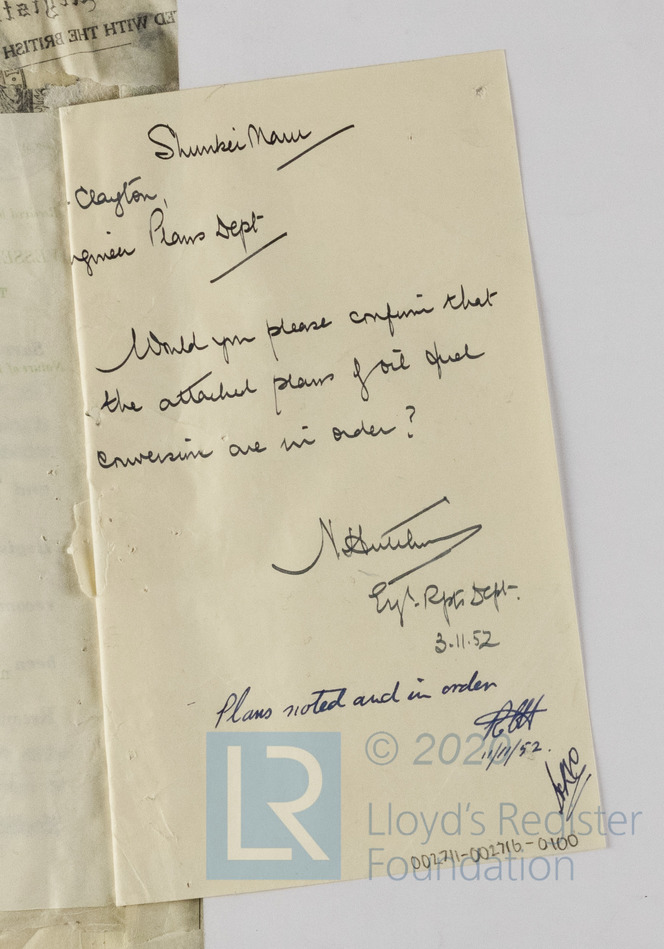 TED WITH THE BRITISH
Shunkei Maru
Clayton,
gineer Plans Dept
Would you please confirm that
the attached plans of oil fuel
conversion are in order?
Engr. Rpts Dept.
3.11.52
Plans noted and in order
11/11/52.
© 2020
LR
Lloyd's Register
Foundation
002711-002716-0100